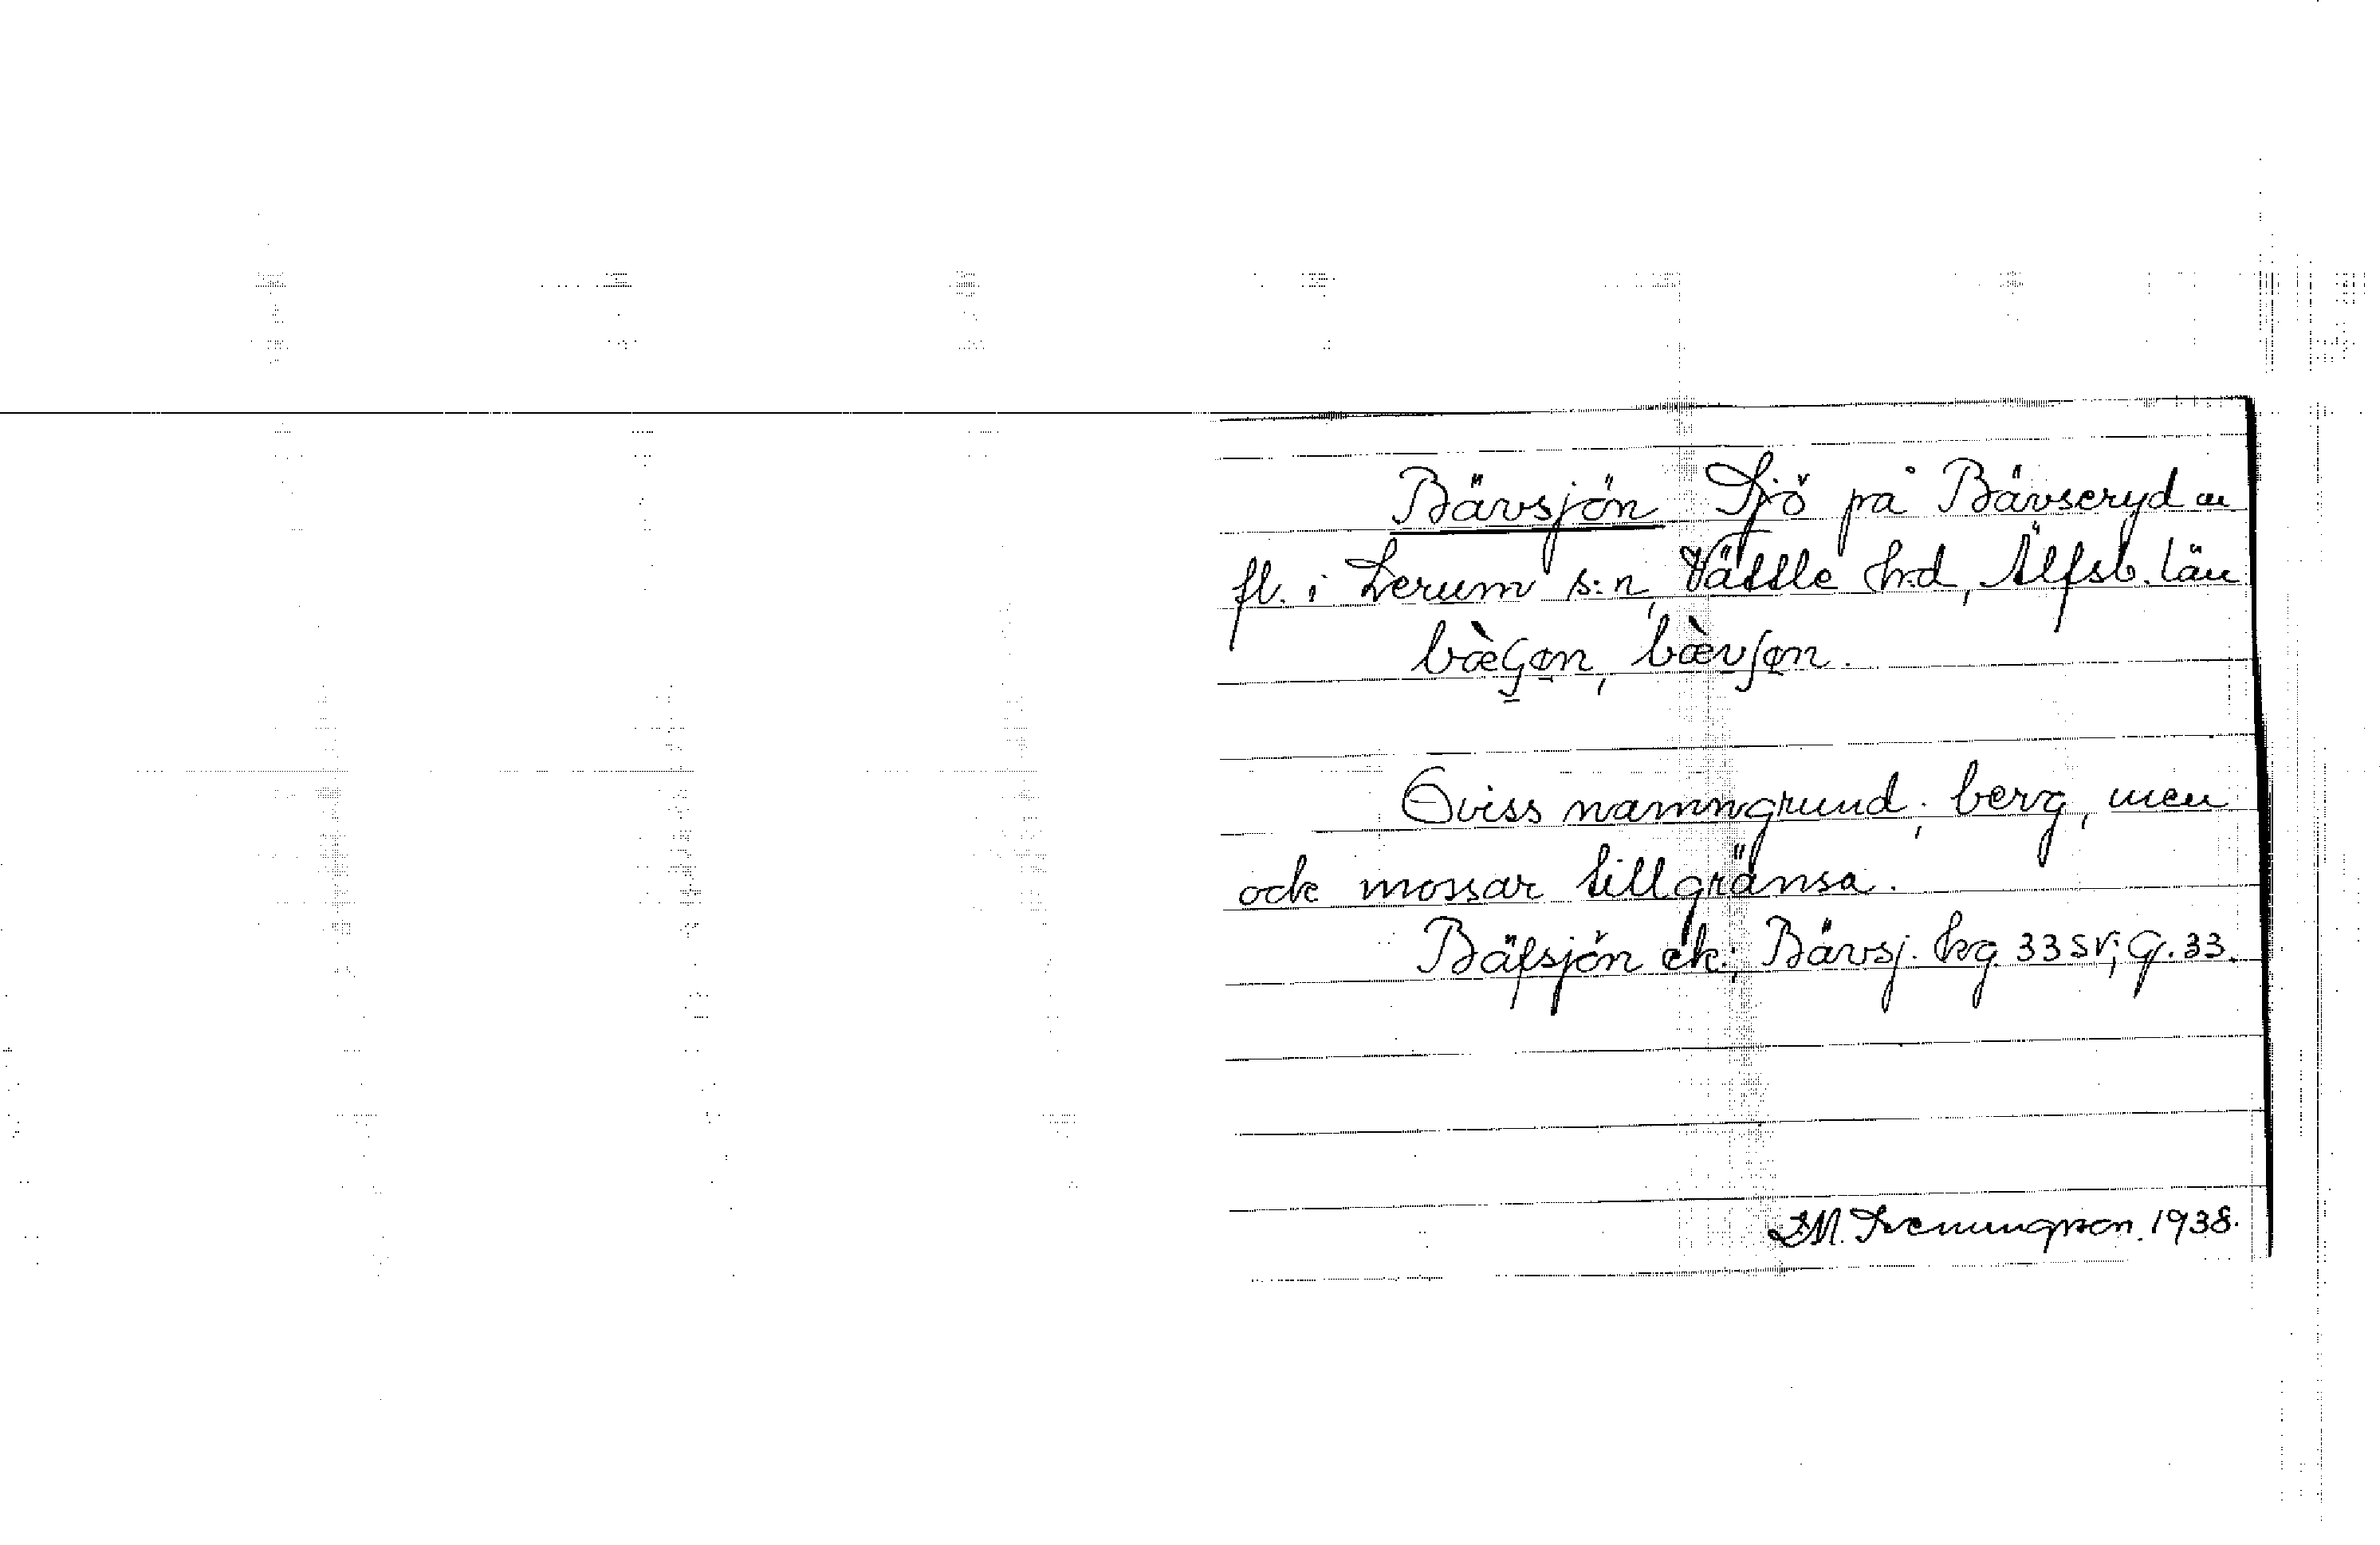 Bävsjön Sjö på Bävseryd m
fl. i Lerum s:n, Vättle hd, Älfsb. län
bæ̀ʃøn, bæ̀vʃøn.
Oviss namngrund; berg, men
ock mossar tillgränsa.
Bäfsjön ek.; Bävsj. hg. 33 sv; G. 33.
1938.